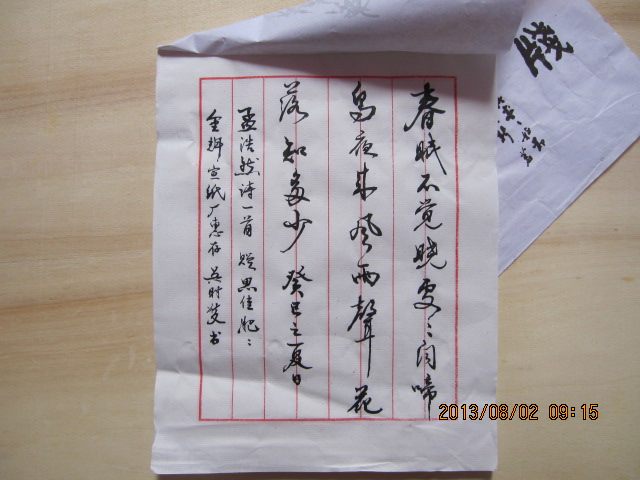 春眠不觉晓处々闻啼
鸟夜来风雨聲花
落知多少 癸巳之夏日
孟浩然诗一首 赠思佳妮々
金辉宣纸厂惠存 吴时茂书
笺
2013/08/02 09:15